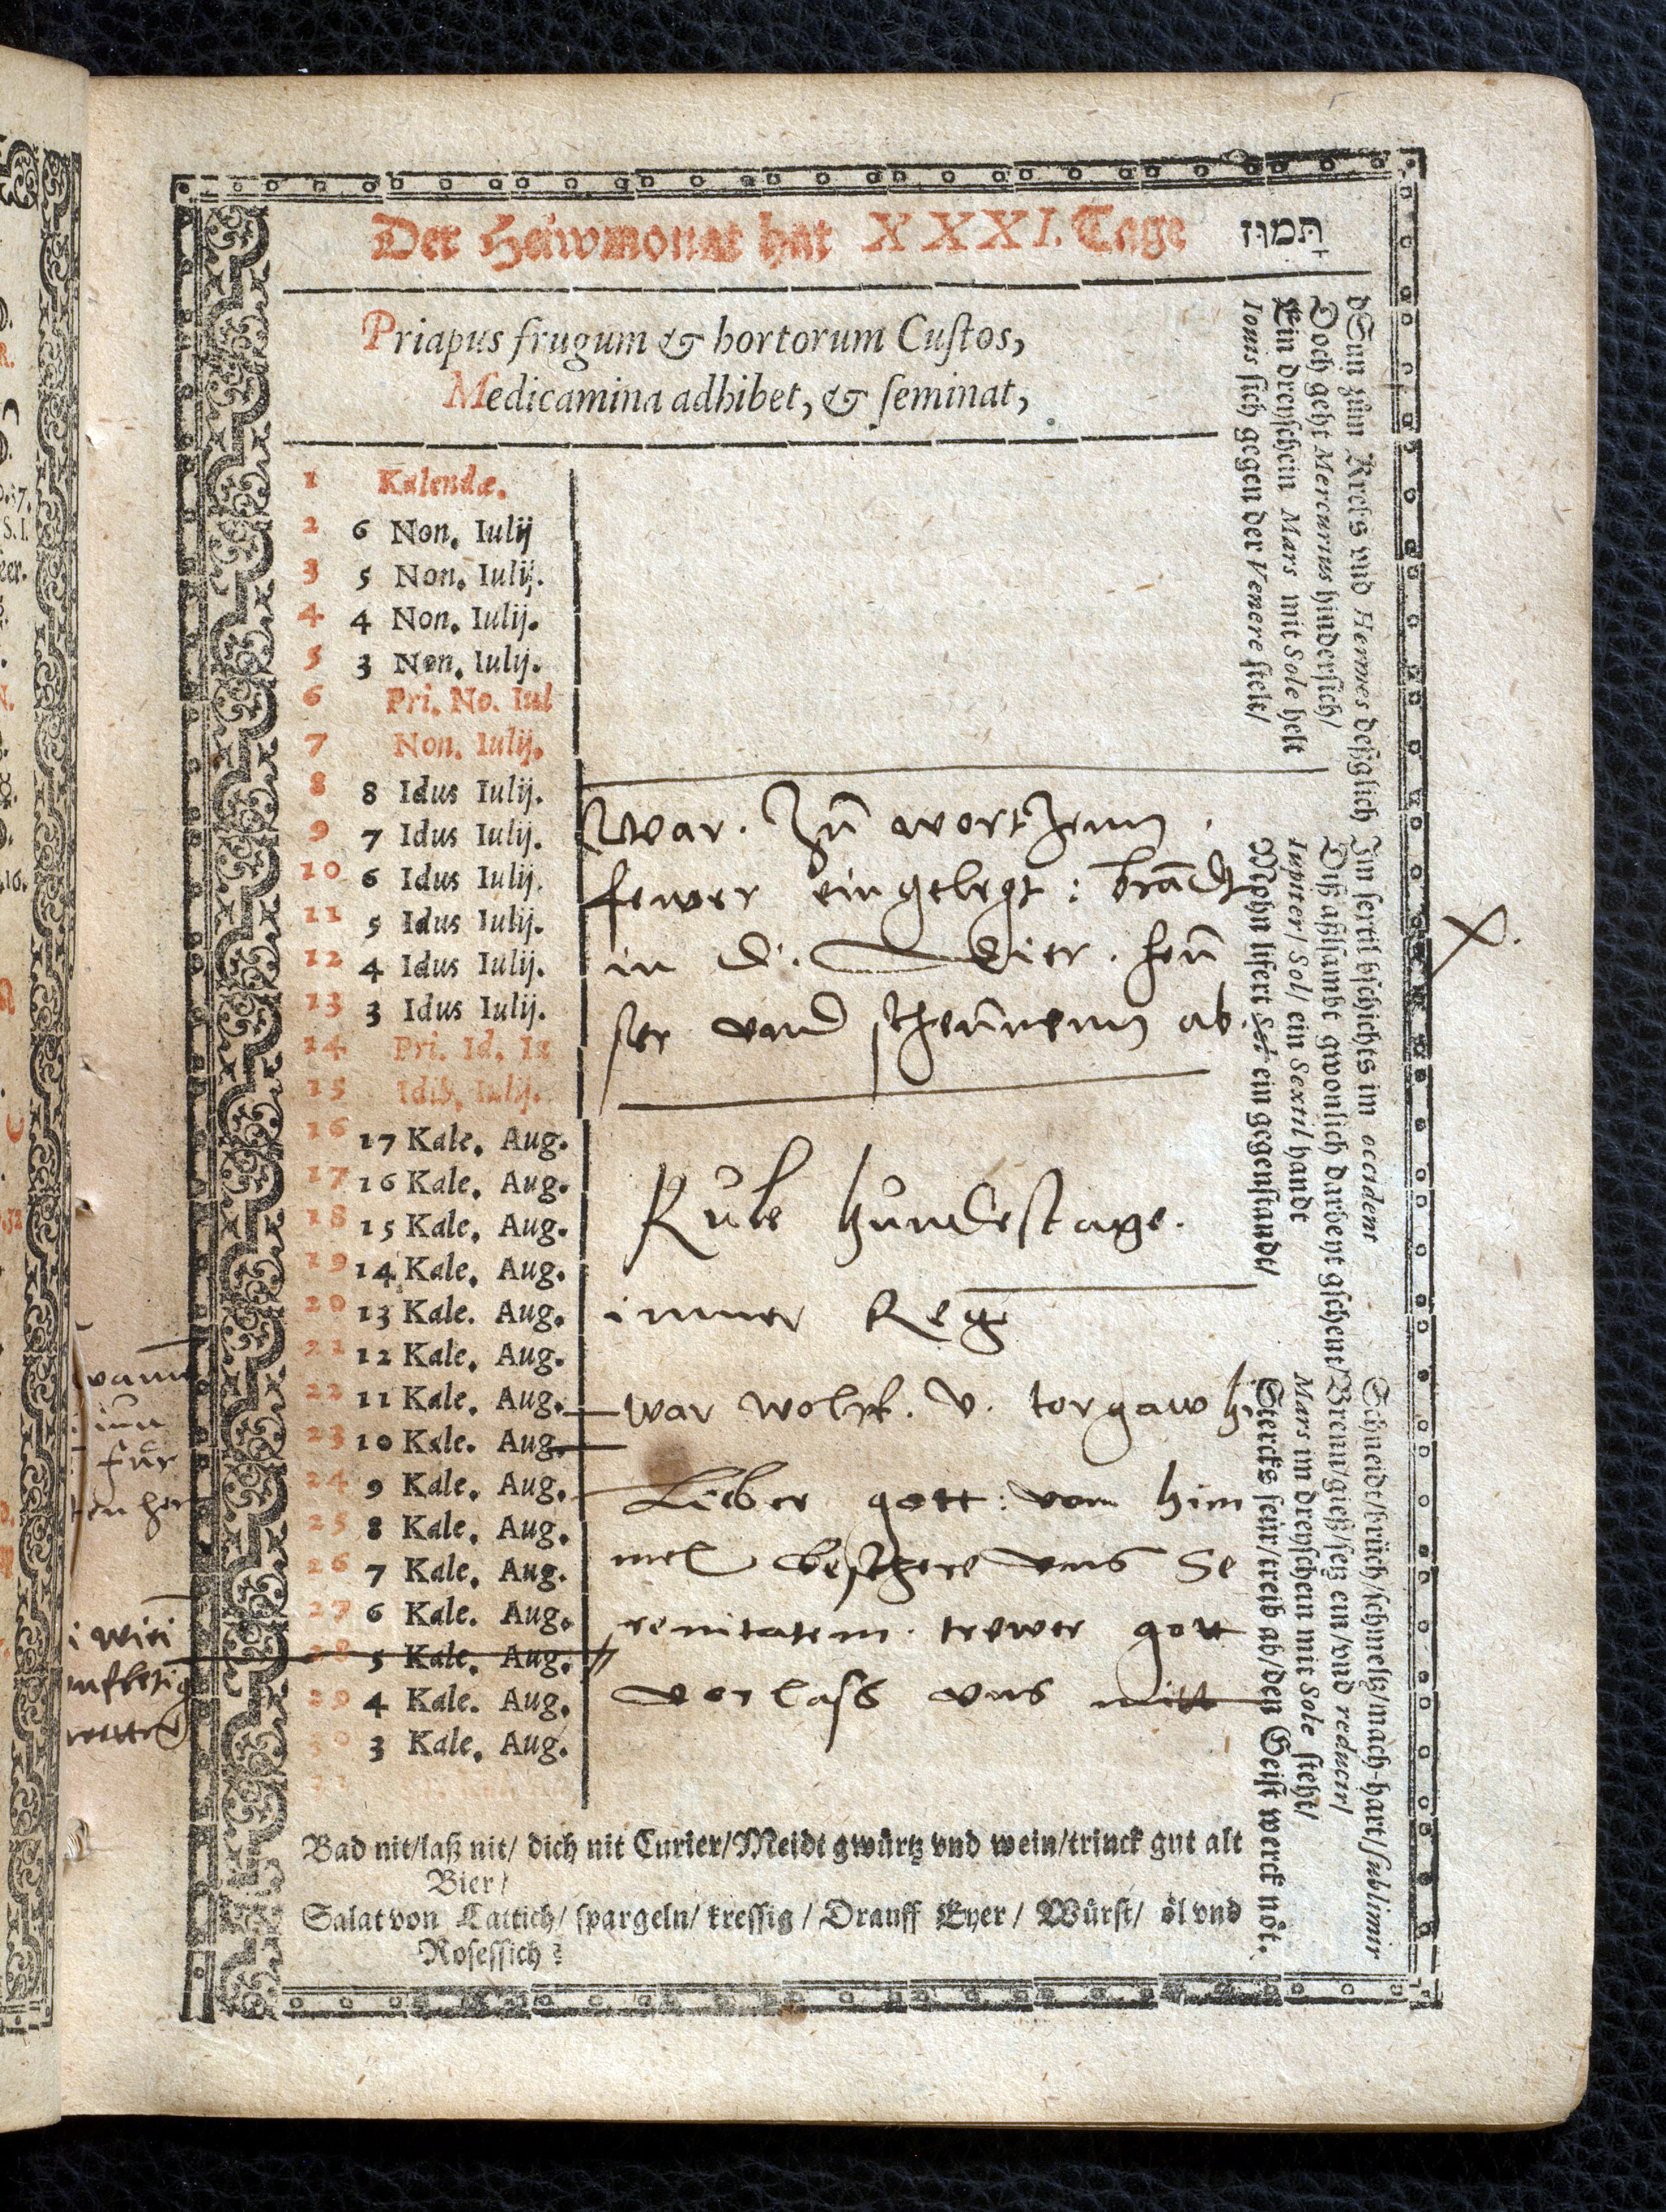 Der Hewmonat hat XXXI. Tage
תמוז
Priapus frugum & hortorum Cuſtos,
Medicamina adhibet, & ſeminat,
1 Kalendæ.
2 6 Non. Iulij
3 5 Non. Iulij.
4 4 Non. Iulij.
5 3 Non. Iulij.
6 Pri. No. Iul
7 Non. Iulij.
8 8 Idus Iulij.
9 7 Idus Iulij.
10 6 Idus Iulij.
11 5 Idus Iulij.
12 4 Idus Iulij.
13 3 Idus Iulij.
14 Pri. Id. Iu
15 Idib. Iulij.
16 17 Kale. Aug.
17 16 Kale. Aug.
18 15 Kale. Aug.
19 14 Kale. Aug.
20 13 Kale. Aug.
21 12 Kale. Aug.
22 11 Kale. Aug.
23 10 Kale. Aug.
24 9 Kale. Aug.
25 8 Kale. Aug.
26 7 Kale. Aug.
27 6 Kale. Aug.
28 5 Kale. Aug.
29 4 Kale. Aug.
30 3 Kale. Aug.
31
war. Zu wortzenn.
fewer eingelegt: brādt
in d. vier. heu
ser vnd scheunenn ab.
X.
Kule hundestage.
immer Reg
war wolff. v. torgaw hi
Lieber gott: vom him
mel beschere vns Se
renitatem. trewer gott
vorlass vns nitt
dSun zum Krebs vnd Hermes deßglich
Doch geht Mercurius hinderſich/
Ein dreyſchein Mars mit Sole helt
Iouis ſich gegen der Venere ſtelt/
Im ſextil bſchichts im occident
Diß aſſambt gwonlich darbeyt gſchent/
Iupiter/ Sol/ ein Sextil handt
Mohn lifert Sol ein gegenſtandt/
Schneidt/brüch/ſchmeltz/mach-hart/ſublimir
Brenn/gieß/ſetz ein/vnd reducir/
Mars im dreyſchein mit Sole ſteht/
Sterckſ feür/treib ab/den Geiſt werck nöt.
Bad nit/laß nit/ dich nit Curier/Meidt gwürtz vnd wein/trinck gut alt
Bier/
Salat von Lattich/ ſpargeln/ kreſſig / Drauff Eyer / Würſt/ öl vnd
Roſeſſich?